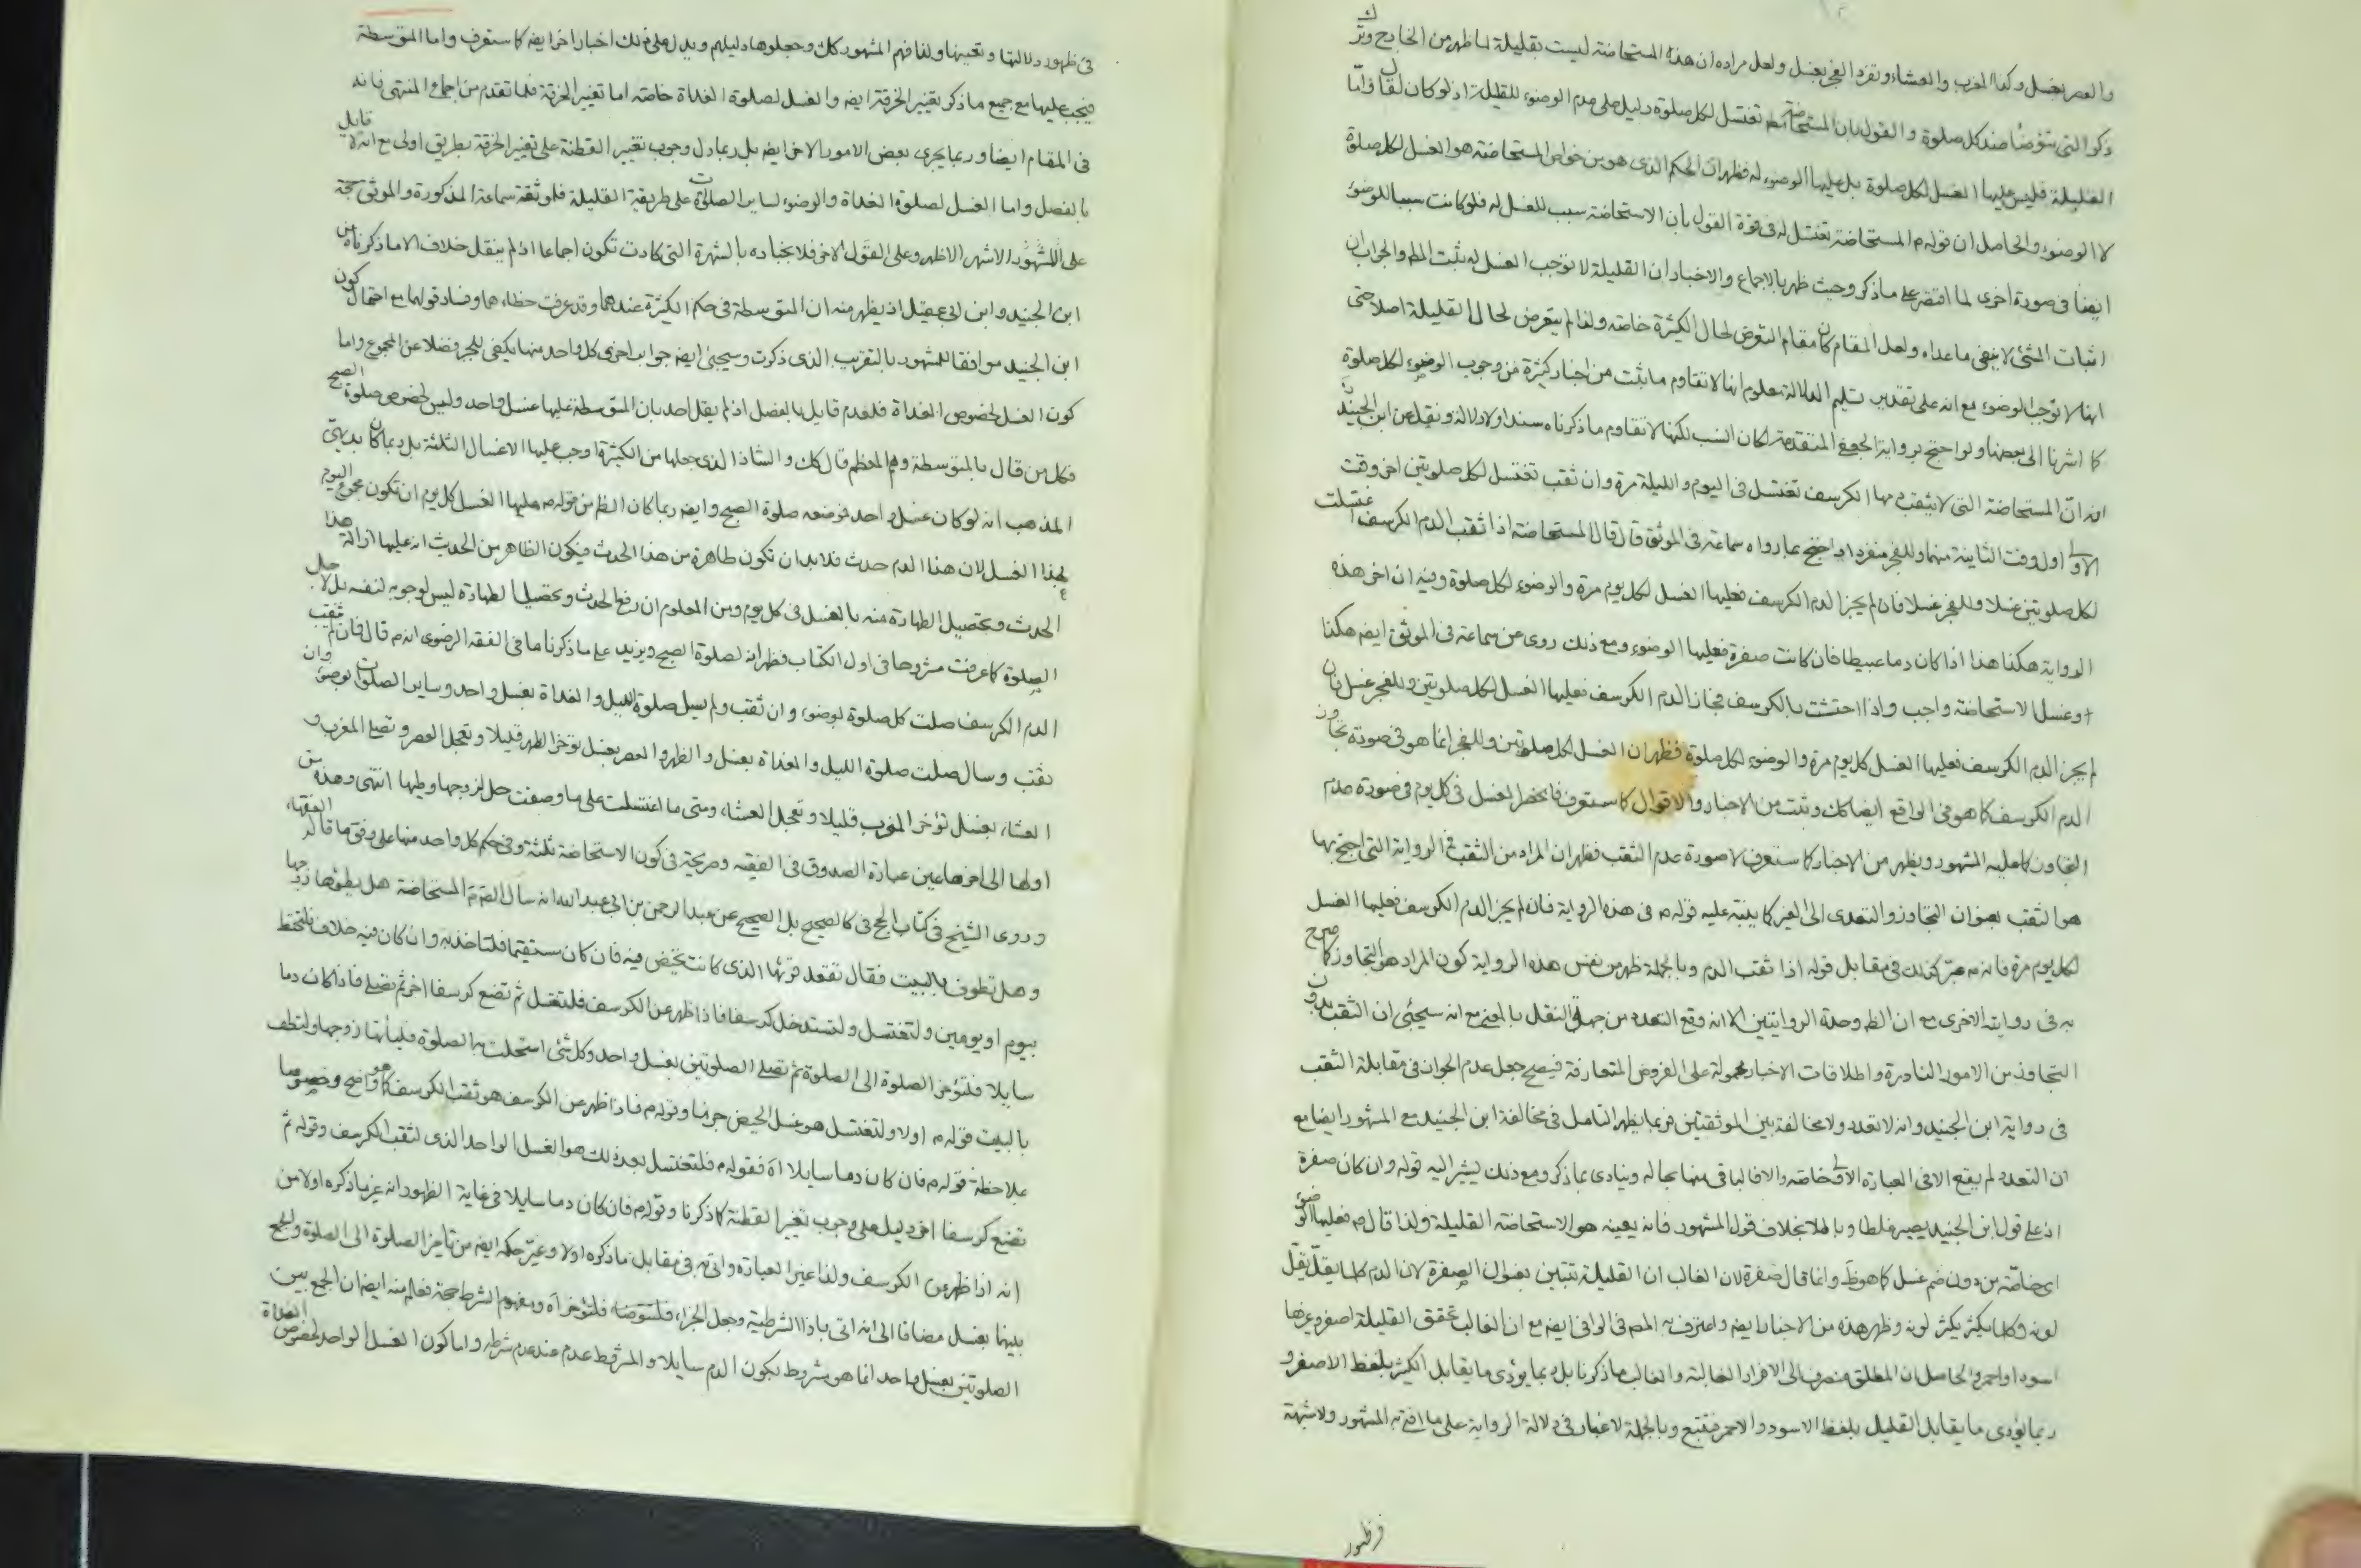 والعصر بغسل وكذا المغرب والعشاء وتفرد الفجر بغسل ولعل مراده ان هذه المستحاضة ليست بقليلة لما ظهر من الخارج وترك
ذكر التي تتوضأ عند كل صلوة والقول بان المستحاضة تغتسل لكل صلوة دليل على عدم الوضوء للقليلة اذ لو كان لقال واما
القليلة فليس عليها الغسل لكل صلوة بل عليها الوضوء له فظهر ان الحكم الذى هو من خواص المستحاضة هو الغسل لكل صلوة
لا الوضوء والحاصل ان قوله م المستحاضة تغتسل له فى قوة القول بان الاستحاضة سبب للغسل له فلو كانت سببا للوضوء
ايضا فى صورة اخرى لما اقتصر على ما ذكر وحيث ظهر بالاجماع والاخبار ان القليلة لا توجب الغسل له ثبت المط والجواب ان
اثبات الشئ لا ينفى ما عداه ولعل المقام كان مقام التعرض لحال الكثيرة خاصة ولذا لم يتعرض لحال القليلة اصلا حتى
انها لا توجب الوضوء مع انه على تقدير تسليم الدلالة معلوم انها لا تقاوم ما ثبت من اخبار كثيرة من وجوب الوضوء لكل صلوة
كما اشرنا الى بعضها ولو احتج برواية الجعفى المتقدمة لكان انسب لكنها لا تقاوم ما ذكرناه سندا ولا دلالة ونقل عن ابن الجنيد
انه ان المستحاضة التى لا يثقب دمها الكرسف تغتسل فى اليوم والليلة مرة وان ثقب تغتسل لكل صلوتين اخر وقت
الاولى اول وقت الثانية منهما وللفجر منفردا واحتج بما رواه سماعة فى الموثق قال قال المستحاضة اذا ثقب الدم الكرسف اغتسلت
لكل صلوتين غسلا وللفجر غسلا فان لم يجز الدم الكرسف فعليها الغسل لكل يوم مرة والوضوء لكل صلوة وفيه ان اخر هذه
الرواية هكذا هذا اذا كان دما عبيطا فان كانت صفرة فعليها الوضوء ومع ذلك روى عن سماعة فى الموثق ايضه هكذا
وغسل الاستحاضة واجب واذا احتشت بالكرسف فجاز الدم الكرسف فعليها الغسل لكل صلوتين وللفجر غسل فان
لم يجز الدم الكرسف فعليها الغسل كل يوم مرة والوضوء لكل صلوة فظهر ان الغسل لكل صلوتين وللفجر انما هو فى صورة تجاوز
الدم الكرسف كما هو فى الواقع ايضا كك وثبت من الاخبار والاقوال كما ستعرف فانحصر الغسل فى كل يوم فى صورة عدم
التجاوز كما عليه المشهور ويظهر من الاخبار كما ستعرف لا صورة عدم الثقب فظهر ان المراد من الثقب فى الرواية التى احتج بها
هو الثقب بعنوان التجاوز والتعدى الى الغير كما ينبه عليه قوله م فى هذه الرواية فان لم يجز الدم الكرسف فعليها الغسل
لكل يوم مرة فانه م عبر كذلك فى مقابل قوله اذا ثقب الدم وبالجملة ظهر من نفس هذه الرواية كون المراد هو التجاوز كما صرح
به فى روايته الاخرى مع ان الظ وحدة الروايتين الا انه وقع التعدد من جهة النقل بالمعنى مع انه سيجئ ان الثقب بدون
التجاوز من الامور النادرة واطلاقات الاخبار محمولة على الفروض المتعارفة فيصح جعل عدم الجواز فى مقابلة الثقب
فى رواية ابن الجنيد وانه لا تعدد ولا مخالفة بين الموثقتين فربما يظهر التامل فى مخالفة ابن الجنيد مع المشهور ايضا مع
ان التعدد لم يقع الا فى العبارة الاولى خاصة والا فالباقى منها بحاله وينادى بما ذكر ومع ذلك يشير اليه قوله وان كان صفرة
اذ على قول ابن الجنيد يصير غلطا وباطلا بخلاف قول المشهور فانه يعينه هو الاستحاضة القليلة ولذا قال م فعليها الوضوء
اى خاصة من دون ضم غسل كما هو ظ وانما قال صفرة لان الغالب ان القليلة تتبين بعنوان الصفرة لان الدم كلما يقل يقل
لونه وكلما يكثر يكثر لونه وظهر هذه من الاخبار ايضه واعترف به المص فى الوافى ايضه مع ان الغالب تحقق القليلة اصفر وغيرها
اسود او احمر والحاصل ان المطلق منصرف الى الافراد الغالبة والغالب ما ذكرنا بل ربما يؤدى ما يقابل الكثير بلفظ الاصفر و
ربما يؤدى ما يقابل القليل بلفظ الاسود والاحمر فتتبع وبالجملة لا غبار فى دلالة الرواية على ما افتى به المشهور ولا شبهة
فى ظهور
فى ظهور دلالتها وتعينها ولذا فهم المشهور كك وجعلوها دليلهم ويدل على ذلك اخبار اخر ايضه كما ستعرف واما المتوسطة
فيجب عليها مع جميع ما ذكر تغيير الخرقة ايضه والغسل لصلوة الغداة خاصة اما تغيير الخرقة فلما تقدم من اجماع المنتهى فانه
فى المقام ايضا وربما يجرى بعض الامور الاخر ايضه بل ربما دل وجوب تغيير القطنة على تغيير الخرقة بطريق اولى مع انه لا قايل
بالفصل واما الغسل لصلوة الغداة والوضوء لساير الصلوات على طريقة القليلة فلموثقة سماعة المذكورة والموثق حجة
على المشهور الاشهر الاظهر وعلى القول الاخر فلانجباره بالشهرة التى كادت تكون اجماعا اذ لم ينقل خلاف الا ما ذكرناه من
ابن الجنيد وابن ابى عقيل اذ يظهر منه ان المتوسطة فى حكم الكثيرة عندهما وقد عرفت خطاءهما وفساد قولهما مع احتمال كون
ابن الجنيد موافقا للمشهور بالتقريب الذى ذكرت وسيجئ ايضه جواب اخرى كل واحد منها يكفى للجبر فضلا عن المجموع واما
كون الغسل لخصوص الغداة فلعدم قايل بالفصل اذ لم يقل احد بان المتوسطة عليها غسل واحد وليس لخصوص صلوة الصبح
فكل من قال بالمتوسطة وهم المعظم قال كك والشاذ الذى جعلها من الكثيرة اوجب عليها الاغسال الثلثة بل ربما كان بديهى
المذهب انه لو كان غسل واحد فموضعه صلوة الصبح وايضه ربما كان الظ من قوله م عليها الغسل كل يوم ان تكون مجموع اليوم
لهذا الغسل لان هذا الدم حدث فلا بد ان تكون طاهرة من هذا الحدث فيكون الظاهر من الحديث انه عليها ازالة هذا
الحدث وتحصيل الطهارة منه بالغسل فى كل يوم ومن المعلوم ان رفع الحدث وتحصيل الطهارة ليس لوجوبه لنفسه بل لاجل
الصلوة كما عرفت مشروحا فى اول الكتاب فظهر انه لصلوة الصبح ويزيد على ما ذكرنا ما فى الفقه الرضوى انه م قال فان لم يثقب
الدم الكرسف صلت كل صلوة بوضوء وان ثقب ولم يسل صلوة الليل والغداة بغسل واحد وساير الصلوات بوضوء وان
ثقب وسال صلت صلوة الليل والغداة بغسل والظهر والعصر بغسل تؤخر الظهر قليلا وتعجل العصر وتصلى المغرب و
العشاء بغسل تؤخر المغرب قليلا وتعجل العشاء ومتى ما اغتسلت على ما وصفت حل لزوجها وطيها انتهى وهذه من
اولها الى اخرها عين عبارة الصدوق فى الفقيه وصريحة فى كون الاستحاضة ثلثة وفى حكم كل واحد منها على وفق ما قاله الفقهاء
وروى الشيخ فى كتاب الحج فى كالصحيح بل الصحيح عن عبد الرحمن بن ابى عبد الله انه سال الصم عن المستحاضة هل يطؤها زوجها
وهل تطوف بالبيت فقال تقعد قرئها الذى كانت تحيض فيه فان كان مستقيما فلتاخذ به وان كان فيه خلاف فلتحتط
بيوم او يومين ولتغتسل ولتستدخل كرسفا فاذا ظهر عن الكرسف فلتغتسل ثم تضع كرسفا اخر ثم تصلى فاذا كان دما
سايلا فلتؤخر الصلوة الى الصلوة ثم تصلى الصلوتين بغسل واحد وكل شئ استحلت به الصلوة فلياتها زوجها ولتطف
بالبيت قوله م اولا ولتغتسل هو غسل الحيض جزما وقوله م فاذا ظهر عن الكرسف هو ثقب الكرسف كما هو واضح وخصوصا
بملاحظة قوله م فان كان دما سايلا اه فقوله م فلتغتسل بعد ذلك هو الغسل الواحد الذى لثقب الكرسف وقوله ثم
تضع كرسفا اخر دليل على وجوب تغيير القطنة كما ذكرنا وقوله م فان كان دما سايلا فى غاية الظهور انه غير ما ذكره اولا من
انه اذا ظهر عن الكرسف ولذا غير العبارة واتى به فى مقابل ما ذكره اولا وغير حكمه ايضه من تاخير الصلوة الى الصلوة والجمع
بينهما بغسل مضافا الى انه اتى باذا الشرطية وجعل الجزاء فلتتوضا فلتؤخر اه ومفهوم الشرط حجة فعلم منه ايضه ان الجمع بين
الصلوتين بغسل واحد انما هو مشروط بكون الدم سايلا والمشروط عدم عند عدم شرطه واما كون الغسل الواحد لخصوص الغداة